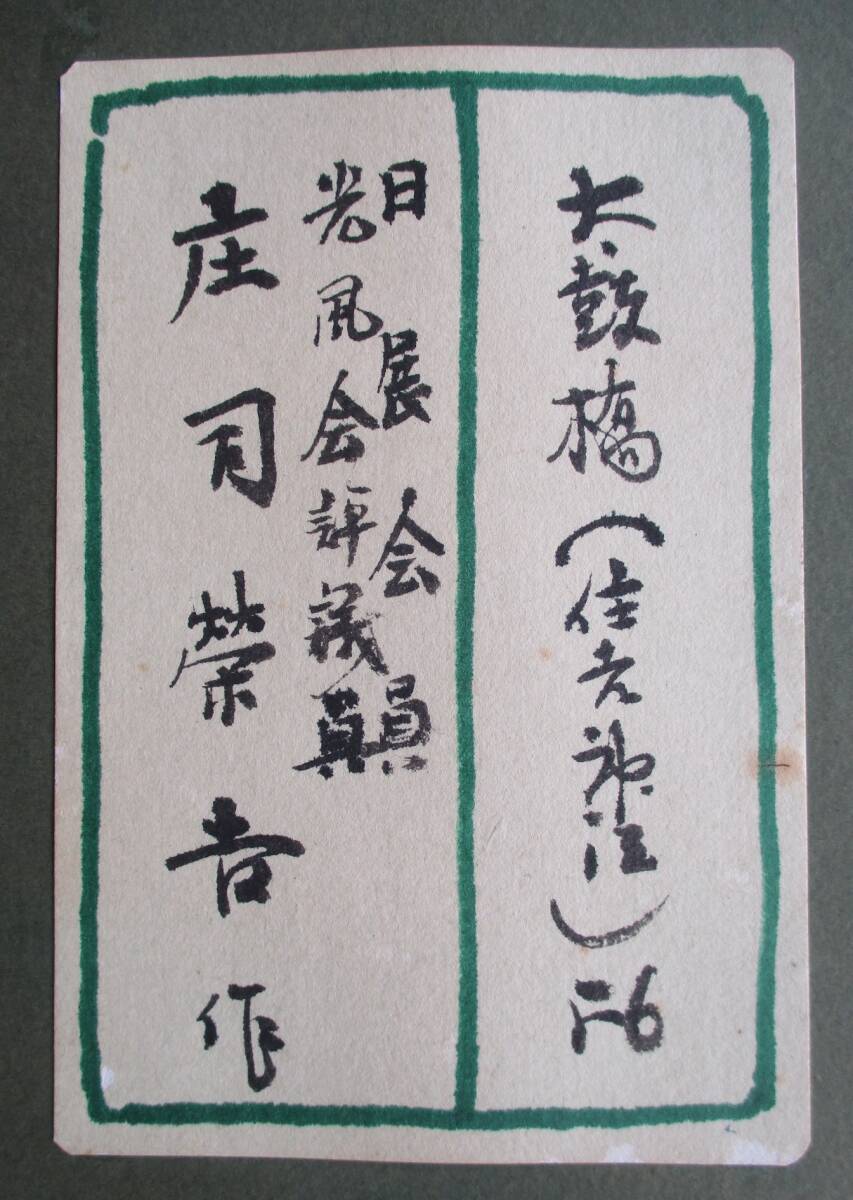 太鼓橋(住吉神社)F6
日展会員
光風会評議員
庄司榮吉作